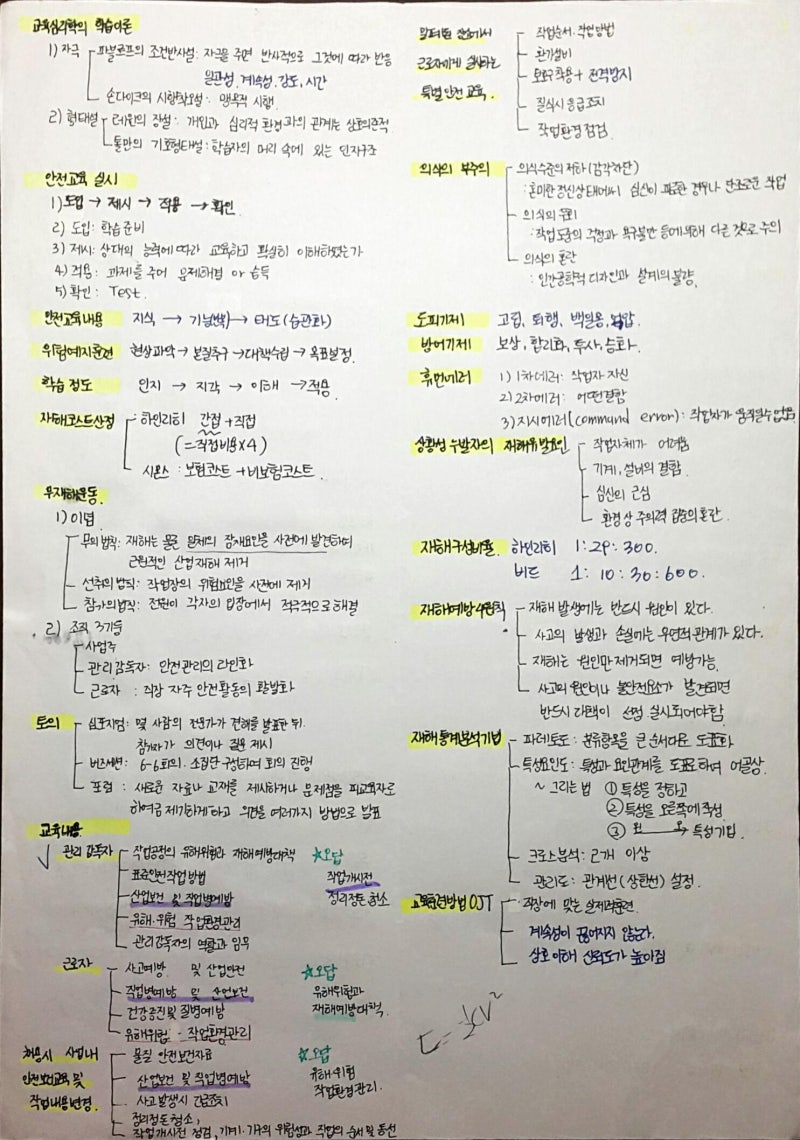 교육심리학의 학습이론
1) 자극 파블로프의 조건반사설: 자극을 주면 반사적으로 그것에 따라 반응
일관성, 계속성, 강도, 시간
손다이크의 시행착오설: 맹목적 시행
2) 형태설 레윈의 장설: 개인과 심리적 환경과의 관계는 상호의존적
톨만의 기호형태설: 학습자의 머리 속에 있는 인지구조
안전교육 실시
1) 도입 → 제시 → 적용 → 확인
2) 도입: 학습준비
3) 제시: 상대의 능력에 따라 교육하고 확실히 이해하였는가
4) 적용: 과제를 주어 문제해결 or 습득
5) 확인: Test.
안전교육내용 지식 → 기능 → 태도(습관화)
위험예지훈련 현상파악 → 본질추구 → 대책수립 → 목표설정.
학습 정도 인지 → 지각 → 이해 → 적용
재해코스트산정 하인리히 간접 + 직접
(=직접비용×4)
시몬스: 보험코스트 + 비보험코스트.
무재해운동.
1) 이념
무의법칙: 재해는 물론 일체의 잠재요인을 사전에 발견하여
근원적인 산업재해 제거
선취의 법칙: 작업장의 위험요인을 사전에 제거
참가의 법칙: 전원이 각자의 입장에서 적극적으로 해결
2) 조직 3기둥
사업주
관리감독자: 안전관리의 라인화
근로자: 직장 자주 안전활동의 활발화
토의 심포지엄: 몇 사람의 전문가가 견해를 발표한 뒤.
참가자가 의견이나 질문 제시
버즈세션: 6-6회의. 소집단 구성하여 회의 진행
포럼: 새로운 자료나 교재를 제시하거나 문제점을 피교육자로
하여금 제기하게하고 의견을 여러가지 방법으로 발표
교육내용
√ 관리감독자 작업공정의 유해위험과 재해예방대책 ☆오답
표준안전작업방법 작업개시전
산업보건 및 직업병예방 정리정돈청소
유해·위험 작업환경관리
관리감독자의 역할과 임무
근로자 사고예방 및 산업안전 ☆오답
직업병예방 및 산업보건 유해위험과
건강증진및 질병예방 재해예방대책.
유해위험 - 작업환경관리
채용시 사업내 물질 안전보건자료 ☆오답
안전보건교육 및 산업보건 및 직업병예방 유해·위험
작업내용변경. 사고발생시 긴급조치 작업환경관리.
정리정돈청소,
작업개시전 점검, 기계·기구의 위험성과 작업의 순서 및 동선
밀폐된 장소에서 작업순서. 작업방법
근로자에게 실시하는 환기설비
특별안전교육. 보호구착용 + 전격방지
질식시 응급조치
작업환경점검.
의식의 부주의 의식수준의 저하(감각차단)
: 혼미한 정신상태에서 심신이 피로한 경우나 단조로운 작업
의식의 우회
: 작업도중의 걱정과 욕구불만 등에의해 다른 것으로 주의
의식의 혼란
: 인간공학적 디자인과 설계의 불량.
도피기제 고립, 퇴행, 백일몽, 억압.
방어기제 보상, 합리화, 투사, 승화.
휴먼에러 1) 1차에러: 작업자 자신
2) 2차에러: 어떤결함
3) 지시에러(command error): 작업자가 움직일수없음
상황성 누발자의 재해유발요인 작업자체가 어려움
기계, 설비의 결함.
심신의 근심
환경상 주의력 집중의 혼란.
재해구성비율. 하인리히 1:29:300.
버드 1:10:30:600.
재해예방 4원칙 재해 발생에는 반드시 원인이 있다.
사고의 발생과 손실에는 우연적관계가 있다.
재해는 원인만제거되면 예방가능.
사고의 원인이나 불안전요소가 발견되면
반드시 대책이 선정 실시되어야함.
재해통계분석기법 파레토도: 분류항목을 큰순서대로 도표화
특성요인도: 특성과 요인관계를 도표로하여 어골상.
~ 그리는 법 ① 특성을 정하고
② 특성을 오른쪽에작성
③ 왼 → 오 특성기입.
크로스분석: 2개 이상
관리도: 관계선(상한선) 설정.
교육훈련방법 OJT 직장에 맞는 실제적훈련.
계속성이 끊어지지 않는다.
상호이해 신뢰도가 높아짐
E=½CV²